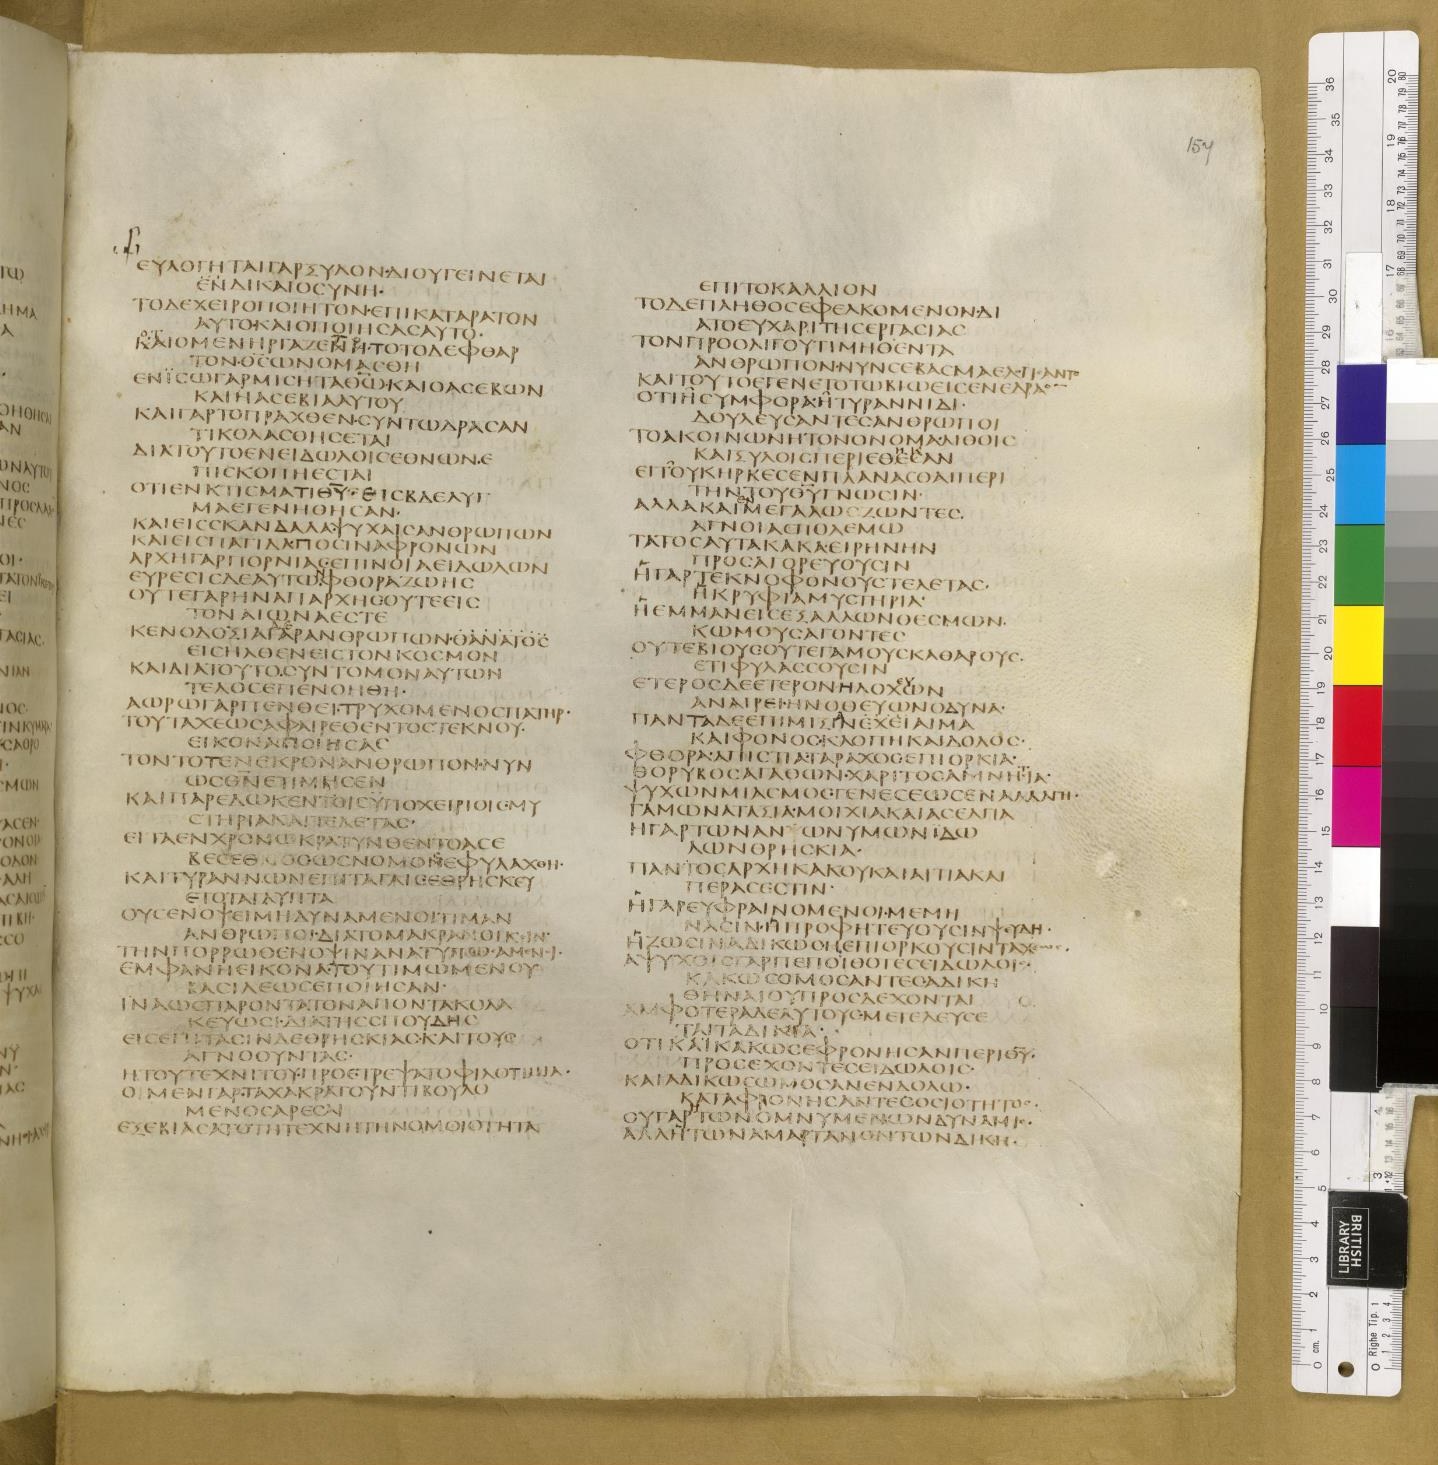 157
ΕΥΛΟΓΗΤΑΙΓΑΡΞΥΛΟΝ·ΔΙΟΥΓΕΙΝΕΤΑΙ
ΕΝΔΙΚΑΙΟСΥΝΗ·
ΤΟΔΕΧΕΙΡΟΠΟΙΗΤΟΝ·ΕΠΙΚΑΤΑΡΑΤΟΝ
ΑΥΤΟ·ΚΑΙΟΠΟΙΗСΑСΑΥΤΟ·
ΤΟΝ·ΘСΩΝΟΜΑСΘΗ
ΕΝΙСΩΓΑΡΜΙСΗΤΑΘΩ·ΚΑΙΟΑСΕΒΩΝ
ΚΑΙΗΑСΕΒΙΑΑΥΤΟΥ
ΚΑΙΓΑΡΤΟΠΡΑΧΘΕΝ·СΥΝΤΩΔΡΑСΑΝ
ΤΙΚΟΛΑСΘΗСΕΤΑΙ
ΔΙΑΤΟΥΤΟΕΝΕΙΔΩΛΟΙСΕΘΝΩΝ·Ε
ΠΙСΚΟΠΗΕСΤΑΙ
ΟΤΙΕΝΚΤΙСΜΑΤΙΘΥ·ΕΙСΒΔΕΛΥΓ
ΜΑΕΓΕΝΗΘΗСΑΝ·
ΚΑΙΕΙССΚΑΝΔΑΛΑ·ΨΥΧΑΙСΑΝΘΡΩΠΩΝ
ΚΑΙΕΙСΠΑΓΙΔΑ·ΠΟСΙΝΑΦΡΟΝΩΝ
ΑΡΧΗΓΑΡΠΟΡΝΙΑС·ΕΠΙΝΟΙΑΕΙΔΩΛΩΝ
ΕΥΡΕСΙСΔΕΑΥΤΩΝΦΘΟΡΑΖΩΗС
ΟΥΤΕΓΑΡΗΝΑΠΑΡΧΗСΟΥΤΕΕΙС
ΤΟΝΑΙΩΝΑΕСΤΕ
ΚΕΝΟΔΟΞΙΑΓΑΡΑΝΘΡΩΠΩΝ·ΟΘΑΝΑΤΟС
ΕΙСΗΛΘΕΝΕΙСΤΟΝΚΟСΜΟΝ
ΚΑΙΔΙΑΤΟΥΤΟ·СΥΝΤΟΜΟΝΑΥΤΩΝ
ΤΕΛΟСΕΠΕΝΟΗΘΗ·
ΑΩΡΩΓΑΡΠΕΝΘΕΙ·ΤΡΥΧΟΜΕΝΟСΠΑΤΗΡ·
ΤΟΥΤΑΧΕΩСΑΦΑΙΡΕΘΕΝΤΟСΤΕΚΝΟΥ·
ΕΙΚΟΝΑΠΟΙΗСΑС
ΤΟΝΤΟΤΕΝΕΚΡΟΝΑΝΘΡΩΠΟΝ·ΝΥΝ
ΩСΘΝΕΤΙΜΗСΕΝ
ΚΑΙΠΑΡΕΔΩΚΕΝΤΟΙСΥΠΟΧΕΙΡΙΟΙС·ΜΥ
СΤΗΡΙΑΚΑΙΤΕΛΕΤΑС·
ΕΙΤΑΕΝΧΡΟΝΩΚΡΑΤΥΝΘΕΝΤΟΑСΕ
ΚΑΙΤΥΡΑΝΝΩΝΕΠΙΤΑΓΑΙСΕΘΡΗСΚΕΥ
ΕΤΟΤΑΓΛΥΠΤΑ
ΟΥСΕΝΟΨΕΙΜΗΔΥΝΑΜΕΝΟΙΤΙΜΑΝ
ΑΝΘΡΩΠΟΙ·ΔΙΑΤΟΜΑΚΡΑΝΟΙΚΙΝ·
ΕΜΦΑΝΗΕΙΚΟΝΑ·ΤΟΥΤΙΜΩΜΕΝΟΥ
ΒΑСΙΛΕΩСΕΠΟΙΗСΑΝ·
ΙΝΑΩСΠΑΡΟΝΤΑΤΟΝΑΠΟΝΤΑΚΟΛΑ
ΚΕΥΩСΙ·ΔΙΑΤΗССΠΟΥΔΗС
ΕΙСΕΠΙΤΑСΙΝΔΕΘΡΗСΚΙΑС·ΚΑΙΤΟΥС
ΑΓΝΟΟΥΝΤΑС·
ΗΤΟΥΤΕΧΝΙΤΟΥ·ΠΡΟΕΤΡΕΨΑΤΟΦΙΛΟΤΙΜΙΑ·
ΟΜΕΝΓΑΡ·ΤΑΧΑΚΡΑΤΟΥΝΤΙΒΟΥΛΟ
ΜΕΝΟСΑΡΕСΑΙ
ΕΞΕΒΙΑСΑΤΟΤΗΤΕΧΝΗΤΗΝΟΜΟΙΟΤΗΤΑ
ΕΠΙΤΟΚΑΛΛΙΟΝ
ΤΟΔΕΠΛΗΘΟСΕΦΕΛΚΟΜΕΝΟΝ·ΔΙ
ΑΤΟΕΥΧΑΡΙΤΗСΕΡΓΑСΙΑС
ΤΟΝΠΡΟΟΛΙΓΟΥΤΙΜΗΘΕΝΤΑ
ΑΝΘΡΩΠΟΝ·ΝΥΝСΕΒΑСΜΑΕΛΟΓΙСΑΝΤΟ
ΚΑΙΤΟΥΤΟΕΓΕΝΕΤΟΤΩΒΙΩΕΙСΕΝΕΔΡΑ
ΟΤΙΗСΥΜΦΟΡΑ·ΗΤΥΡΑΝΝΙΔΙ·
ΔΟΥΛΕΥСΑΝΤΕСΑΝΘΡΩΠΟΙ
ΤΟΑΚΟΙΝΩΝΗΤΟΝΟΝΟΜΑ·ΛΙΘΟΙС
ΚΑΙΞΥΛΟΙСΠΕΡΙΕΘΗΚΑΝ
ΕΙΤΟΥΚΗΡΚΕСΕΝΠΛΑΝΑСΘΑΙΠΕΡΙ
ΤΗΝΤΟΥΘΥΓΝΩСΙΝ·
ΑΛΛΑΚΑΙΕΝΜΕΓΑΛΩΖΩΝΤΕС·
ΑΓΝΟΙΑСΠΟΛΕΜΩ
ΤΑΤΟСΑΥΤΑΚΑΚΑ·ΕΙΡΗΝΗΝ
ΠΡΟСΑΓΟΡΕΥΟΥСΙΝ
ΗΓΑΡΤΕΚΝΟΦΟΝΟΥСΤΕΛΕΤΑС·
ΗΚΡΥΦΙΑΜΥСΤΗΡΙΑ·
ΗΕΜΜΑΝΕΙСΕΞΑΛΛΩΝΘΕСΜΩΝ·
ΚΩΜΟΥСΑΓΟΝΤΕС
ΟΥΤΕΒΙΟΥСΟΥΤΕΓΑΜΟΥСΚΑΘΑΡΟΥС·
ΕΤΙΦΥΛΑССΟΥСΙΝ
ΕΤΕΡΟСΔΕΕΤΕΡΟΝΗΛΟΧΕΥΩΝ
ΑΝΑΙΡΕΙ·ΗΝΟΘΕΥΩΝΟΔΥΝΑ·
ΠΑΝΤΑΔΕΕΠΙΜΙΞΑΝΕΧΕΙΑΙΜΑ
ΚΑΙΦΟΝΟС·ΚΛΟΠΗΚΑΙΔΟΛΟС·
ΦΘΟΡΑ·ΑΠΙСΤΙΑ·ΤΑΡΑΧΟСΕΠΙΟΡΚΙΑ·
ΘΟΡΥΒΟСΑΓΑΘΩΝ·ΧΑΡΙΤΟСΑΜΝΗСΤΙΑ·
ΨΥΧΩΝΜΙΑСΜΟС·ΓΕΝΕСΕΩСΕΝΑΛΛΑΓΗ·
ΓΑΜΩΝΑΤΑΞΙΑ·ΜΟΙΧΙΑΚΑΙΑСΕΛΓΙΑ
ΗΓΑΡΤΩΝΑΝΩΝΥΜΩΝΙΔΩ
ΛΩΝΘΡΗСΚΙΑ·
ΠΑΝΤΟСΑΡΧΗΚΑΚΟΥΚΑΙΑΙΤΙΑΚΑΙ
ΠΕΡΑСΕСΤΙΝ·
ΗΓΑΡΕΥΦΡΑΙΝΟΜΕΝΟΙ·ΜΕΜΗ
ΝΑСΙΝ·ΗΠΡΟΦΗΤΕΥΟΥСΙΝΨΕΥΔΗ·
ΗΖΩСΙΝΑΔΙΚΩС·ΗΕΠΙΟΡΚΟΥСΙΝΤΑΧΕΩС·
ΑΨΥΧΟΙСΓΑΡΠΕΠΟΙΘΟΤΕСΕΙΔΩΛΟΙС·
ΚΑΚΩСΟΜΟСΑΝΤΕСΑΔΙΚΗ
ΘΗΝΑΙΟΥΠΡΟСΔΕΧΟΝΤΑΙ
ΑΜΦΟΤΕΡΑΔΕΑΥΤΟΥСΜΕΤΕΛΕΥСΕ
ΤΑΙΤΑΔΙΚΑΙΑ·
ΟΤΙΚΑΙΚΑΚΩСΕΦΡΟΝΗСΑΝΠΕΡΙΘΥ·
ΠΡΟСΕΧΟΝΤΕСΕΙΔΩΛΟΙС·
ΚΑΙΑΔΙΚΩСΩΜΟСΑΝΕΝΔΟΛΩ·
ΚΑΤΑΦΡΟΝΗСΑΝΤΕСΟСΙΟΤΗΤΟС·
ΟΥΓΑΡΗΤΩΝΟΜΝΥΜΕΝΩΝΔΥΝΑΜΙС·
ΑΛΛΗΤΩΝΑΜΑΡΤΑΝΟΝΤΩΝΔΙΚΗ·
BRITISH
LIBRARY